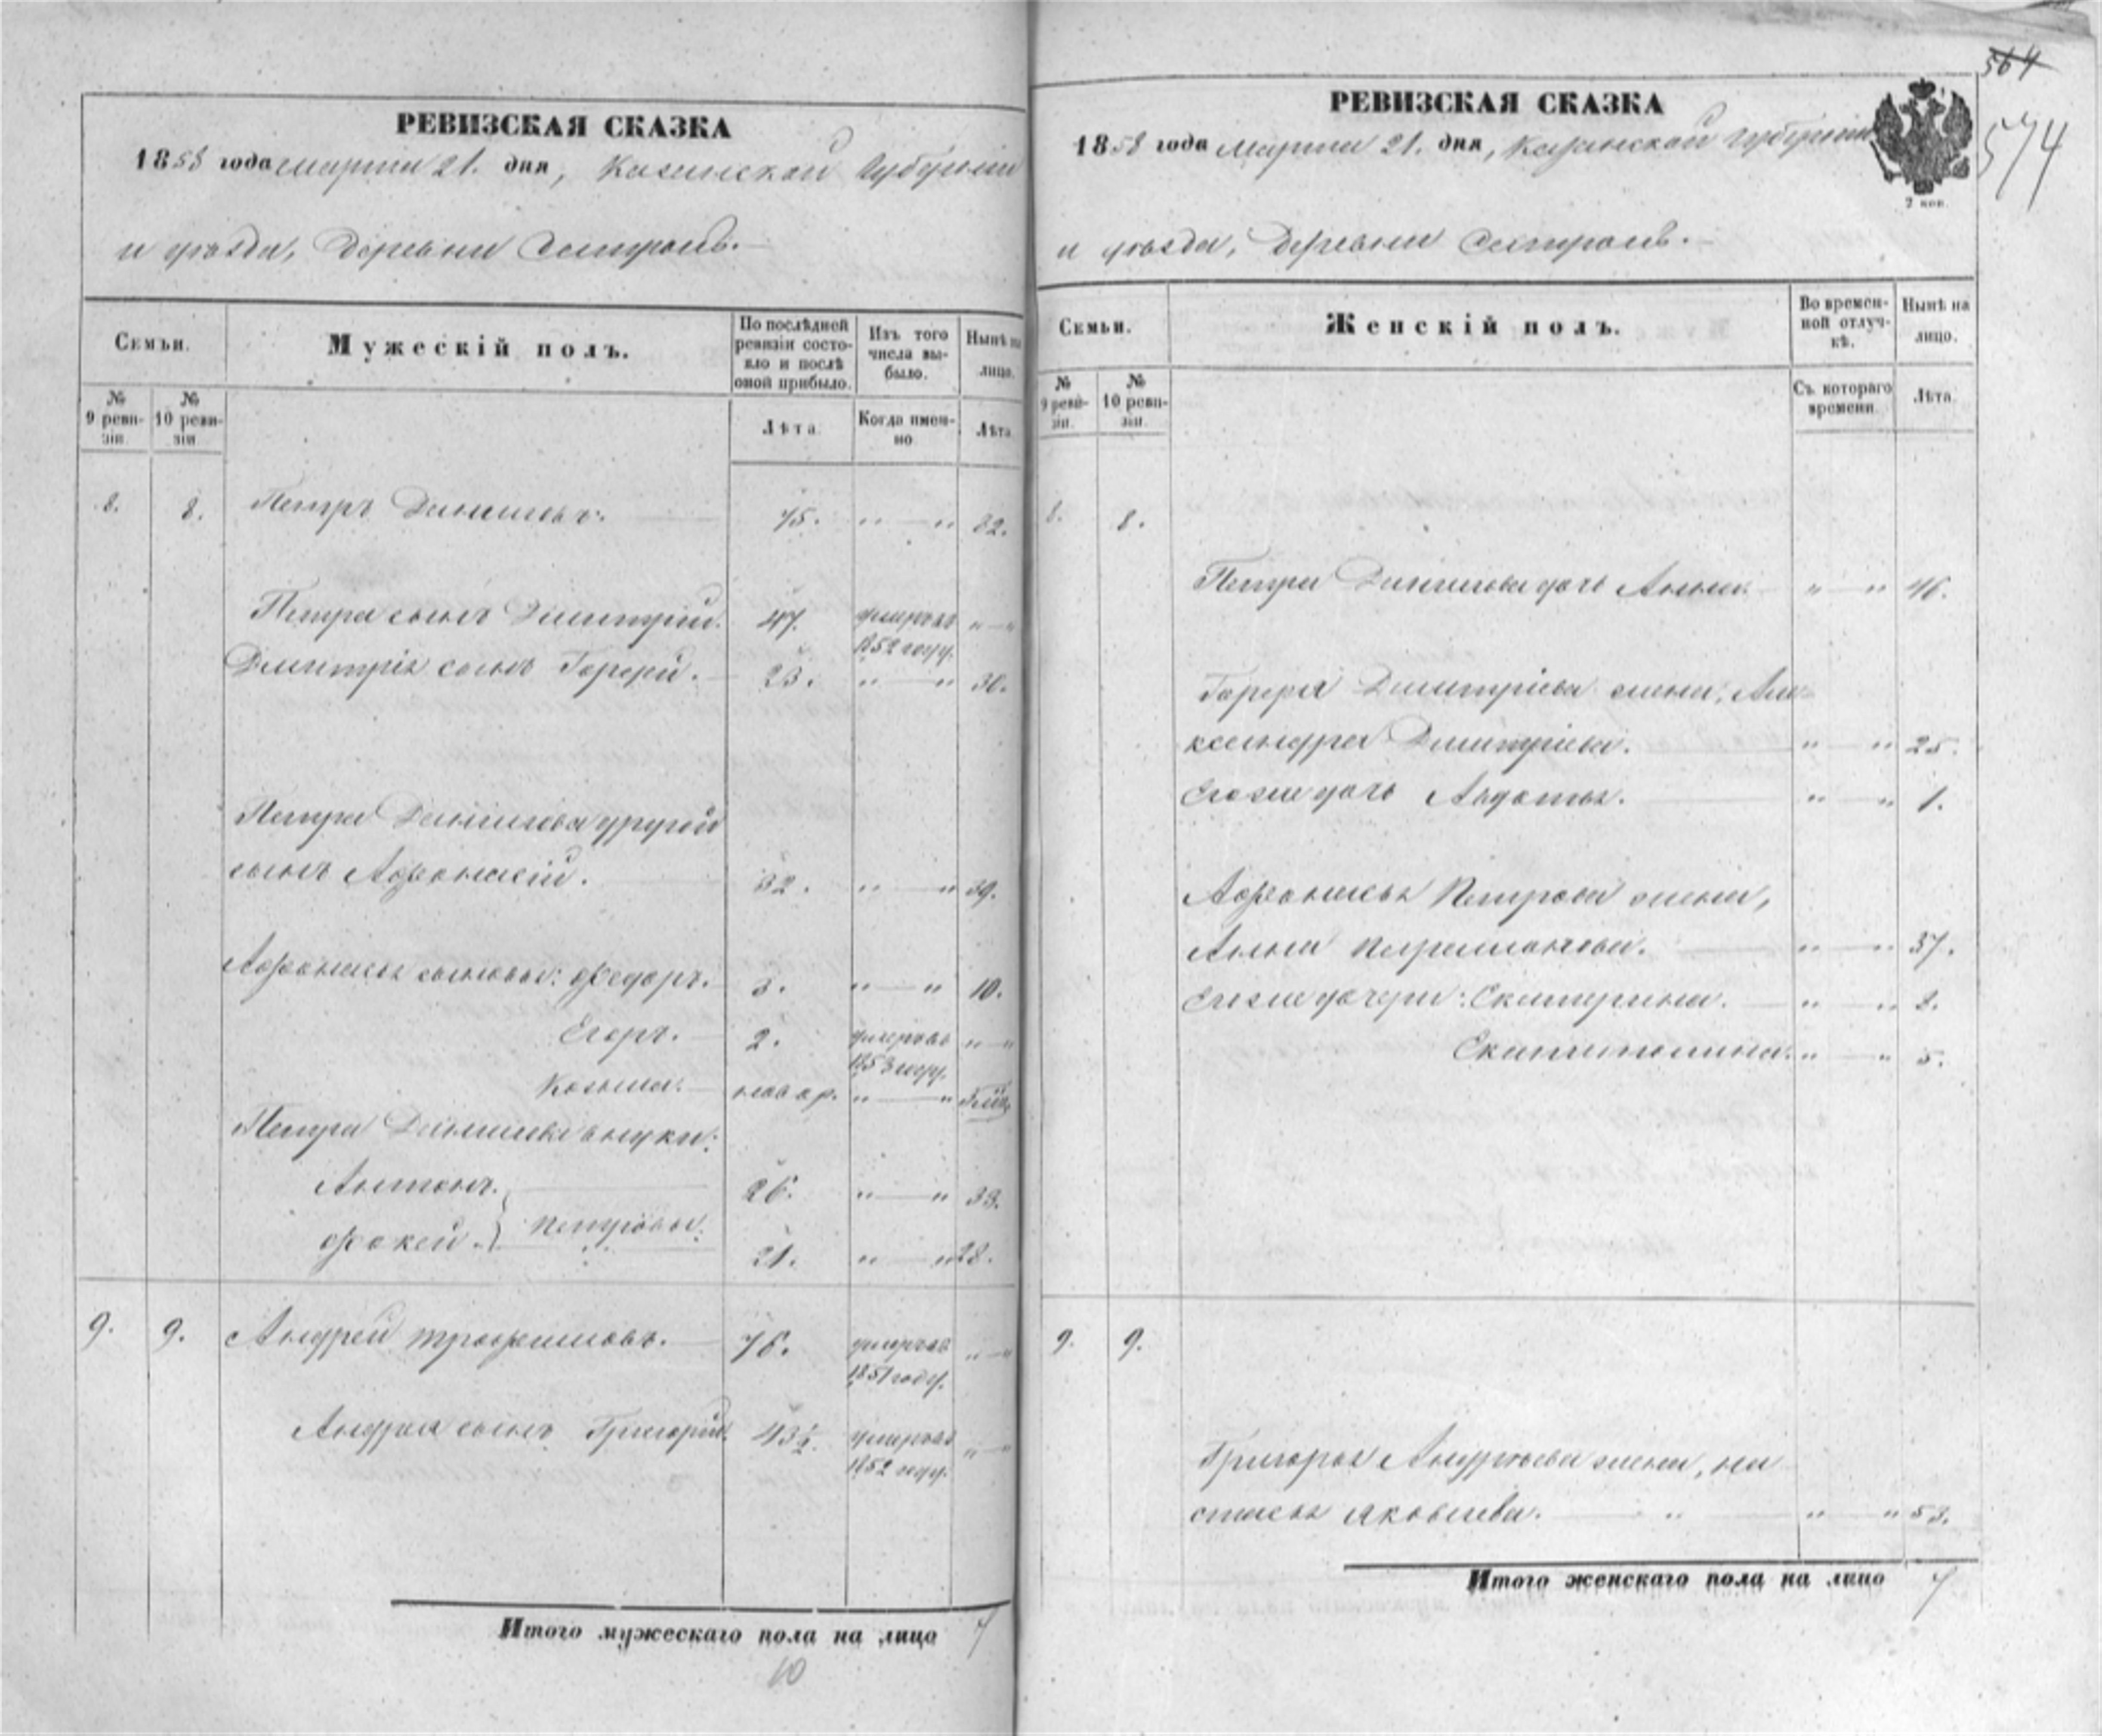 РЕВИЗСКАЯ СКАЗКА
1858 года марта 21. дня, Казанской Губерніи
и уѣзда, деревни
Семьи.
Мужескій полъ.
По послѣдней ревизіи состояло и послѣ оной прибыло.
Изъ того числа выбыло.
Нынѣ на лицо.
№ 9 ревизіи.
№ 10 ревизіи
Лѣта.
Когда именно
Лѣта
8. 8. Петръ Даниловъ. 75. " — " 82.
Петра сынъ Дмитрій. 47. умеръ въ 1852 году. " — "
Дмитрія сынъ Гордей. 23. " — " 30.
Петра Данилова другой
сынъ Афонасій. 32. " — " 39.
Афонасья сыновья: Федоръ. 3. " — " 10.
Егоръ. 2. умеръ въ 1853 году. " — "
Козьма. новор. " — "
Петра Данилова внуки:
Антонъ. 26. " — " 33.
Фокей. } Петровы. 21. " — " 28.
9. 9. Андрей Трофимовъ. 76. умеръ въ 1851 году. " — "
Андрея сынъ Григорій. 43½. умеръ въ 1852 году. " — "
Итого мужескаго пола на лицо 7
10
564
574
РЕВИЗСКАЯ СКАЗКА
1858 года Марта 21. дня, Казанской Губерніи
2 коп.
и уѣзда, деревни
Семьи.
Женскій полъ.
Во временной отлучкѣ.
Нынѣ на лицо.
№ 9 ревизіи.
№ 10 ревизіи.
Съ котораго времени.
Лѣта.
8. 8.
Петра Данилова дочь Анна. " — " 46.
Гордея Дмитріева жена, Але
ксандра Дмитріева. " — " 25.
Егоже дочь Авдотья. " — " 1.
Афонасья Петрова жена,
Анна Парамонова. " — " 37.
Егоже дочери: Екатерина. " — " 8.
" — " 5.
9. 9.
Григорья Андреева жена, На
стасья Яковлева. " — " 53.
Итого женскаго пола на лицо 7